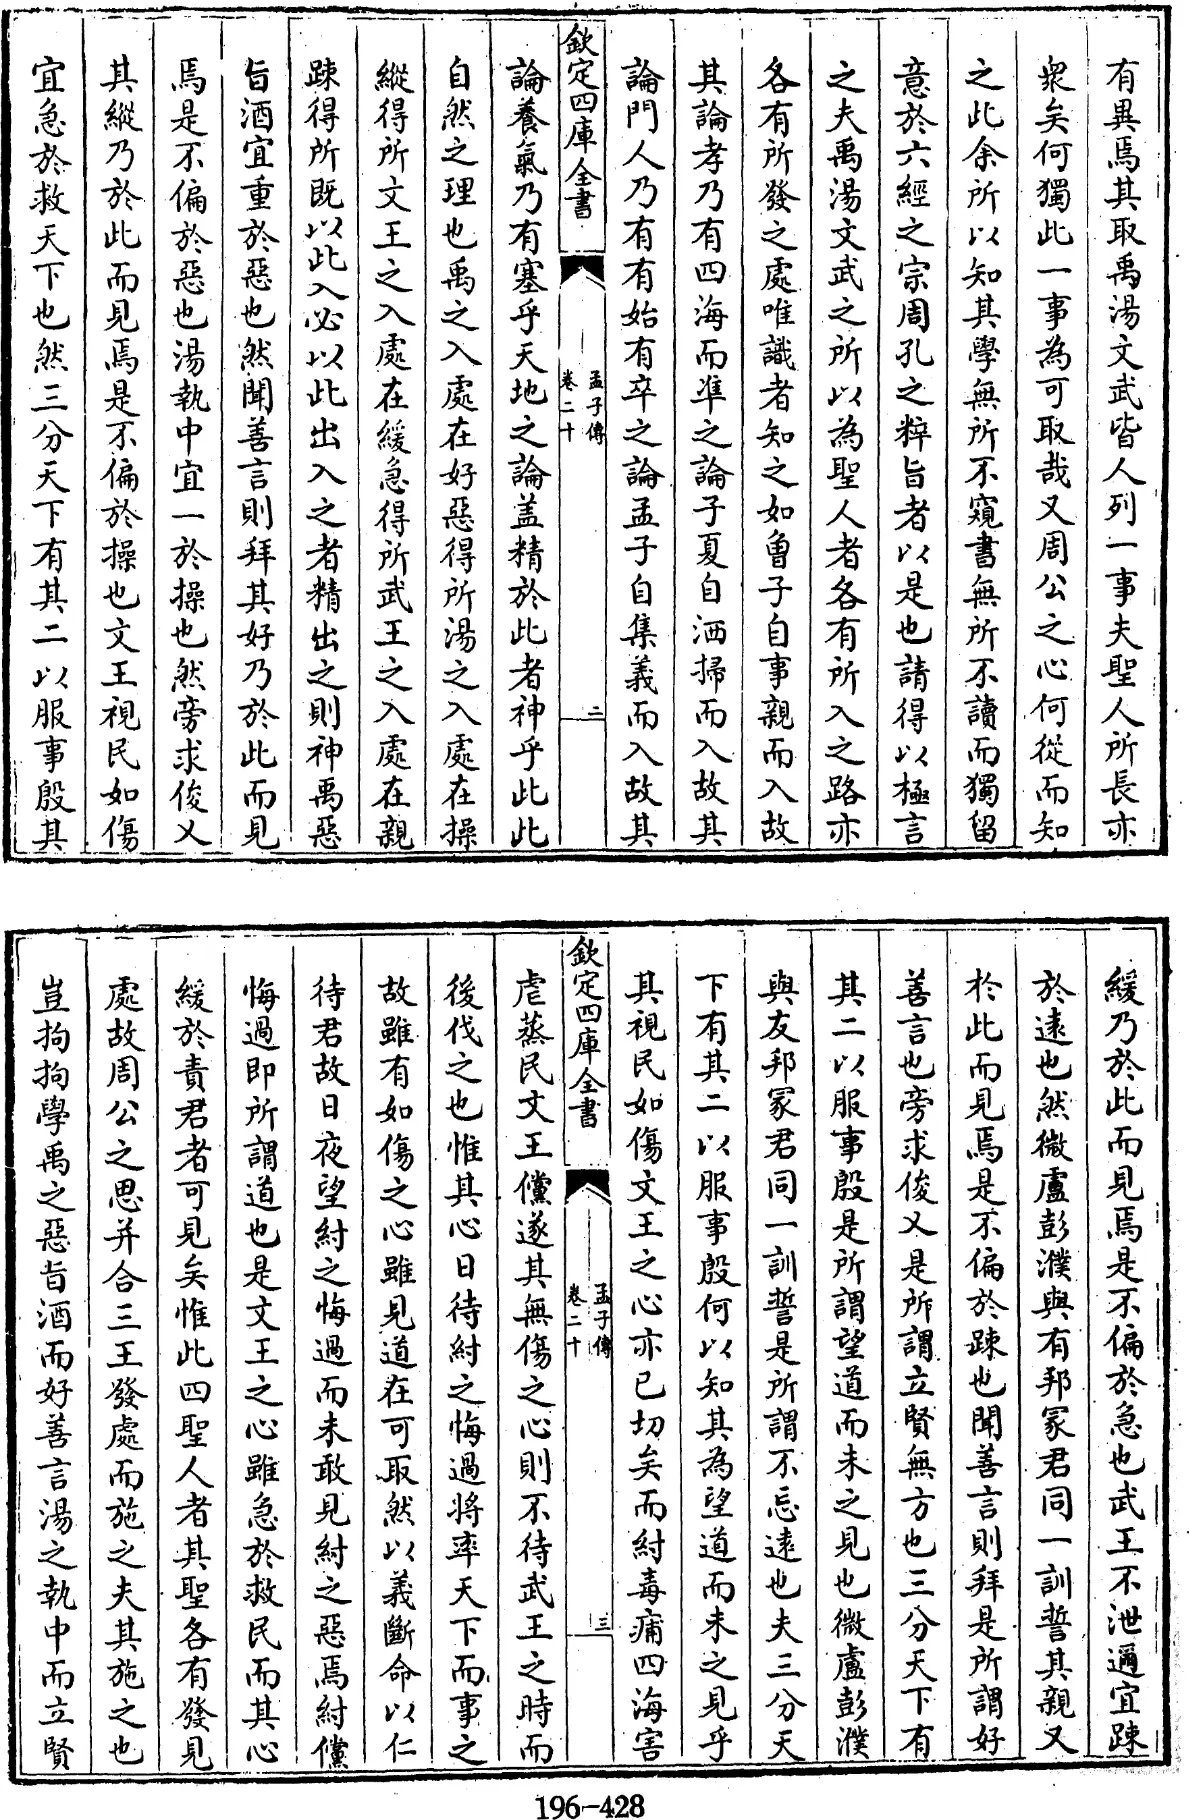 有異焉其取禹湯文武皆人列一事夫聖人所長亦
衆矣何獨此一事為可取哉又周公之心何從而知
之此余所以知其學無所不窺書無所不讀而獨留
意於六經之宗周孔之粹旨者以是也請得以極言
之夫禹湯文武之所以為聖人者各有所入之路亦
各有所發之處唯識者知之如曾子自事親而入故
其論孝乃有四海而準之論子夏自洒掃而入故其
論門人乃有有始有卒之論孟子自集義而入故其
欽定四庫全書
孟子傳
卷二十
二
論養氣乃有塞乎天地之論盖精於此者神乎此此
自然之理也禹之入處在好惡得所湯之入處在操
縱得所文王之入處在緩急得所武王之入處在親
踈得所既以此入必以此出入之者精出之則神禹惡
旨酒宜重於惡也然聞善言則拜其好乃於此而見
焉是不偏於惡也湯執中宜一於操也然旁求俊乂
其縱乃於此而見焉是不偏於操也文王視民如傷
宜急於救天下也然三分天下有其二以服事殷其
緩乃於此而見焉是不偏於急也武王不泄邇宜踈
於遠也然微盧彭濮與有邦冢君同一訓誓其親又
於此而見焉是不偏於踈也聞善言則拜是所謂好
善言也旁求俊乂是所謂立賢無方也三分天下有
其二以服事殷是所謂望道而未之見也微盧彭濮
與友邦冢君同一訓誓是所謂不忘逺也夫三分天
下有其二以服事殷何以知其為望道而未之見乎
其視民如傷文王之心亦已切矣而紂毒痡四海害
欽定四庫全書
孟子傳
卷二十
三
虐蒸民文王儻遂其無傷之心則不待武王之時而
後伐之也惟其心日待紂之悔過將率天下而事之
故雖有如傷之心雖見道在可取然以義斷命以仁
待君故日夜望紂之悔過而未敢見紂之惡焉紂儻
悔過即所謂道也是文王之心雖急於救民而其心
緩於責君者可見矣惟此四聖人者其聖各有發見
處故周公之思并合三王發處而施之夫其施之也
豈拘拘學禹之惡旨酒而好善言湯之執中而立賢
196-428